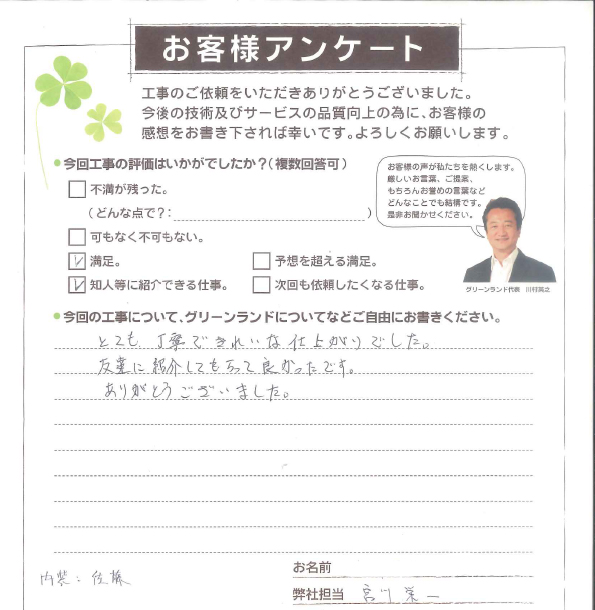 お客様アンケート
工事のご依頼をいただきありがとうございました。
今後の技術及びサービスの品質向上の為に、お客様の
感想をお書き下されば幸いです。よろしくお願いします。
今回工事の評価はいかがでしたか?(複数回答可)
不満が残った。
(どんな点で?: )
可もなく不可もない。
満足。
予想を超える満足。
知人等に紹介できる仕事。
次回も依頼したくなる仕事。
お客様の声が私たちを熱くします。
厳しいお言葉、ご提案、
もちろんお誉めの言葉など
どんなことでも結構です。
是非お聞かせください。
グリーンランド代表
今回の工事について、グリーンランドについてなどご自由にお書きください。
とても丁寧できれいな仕上がりでした。
友達に紹介してもらって良かったです。
ありがとうございました。
内装:佐藤
お名前
弊社担当 宮川栄一